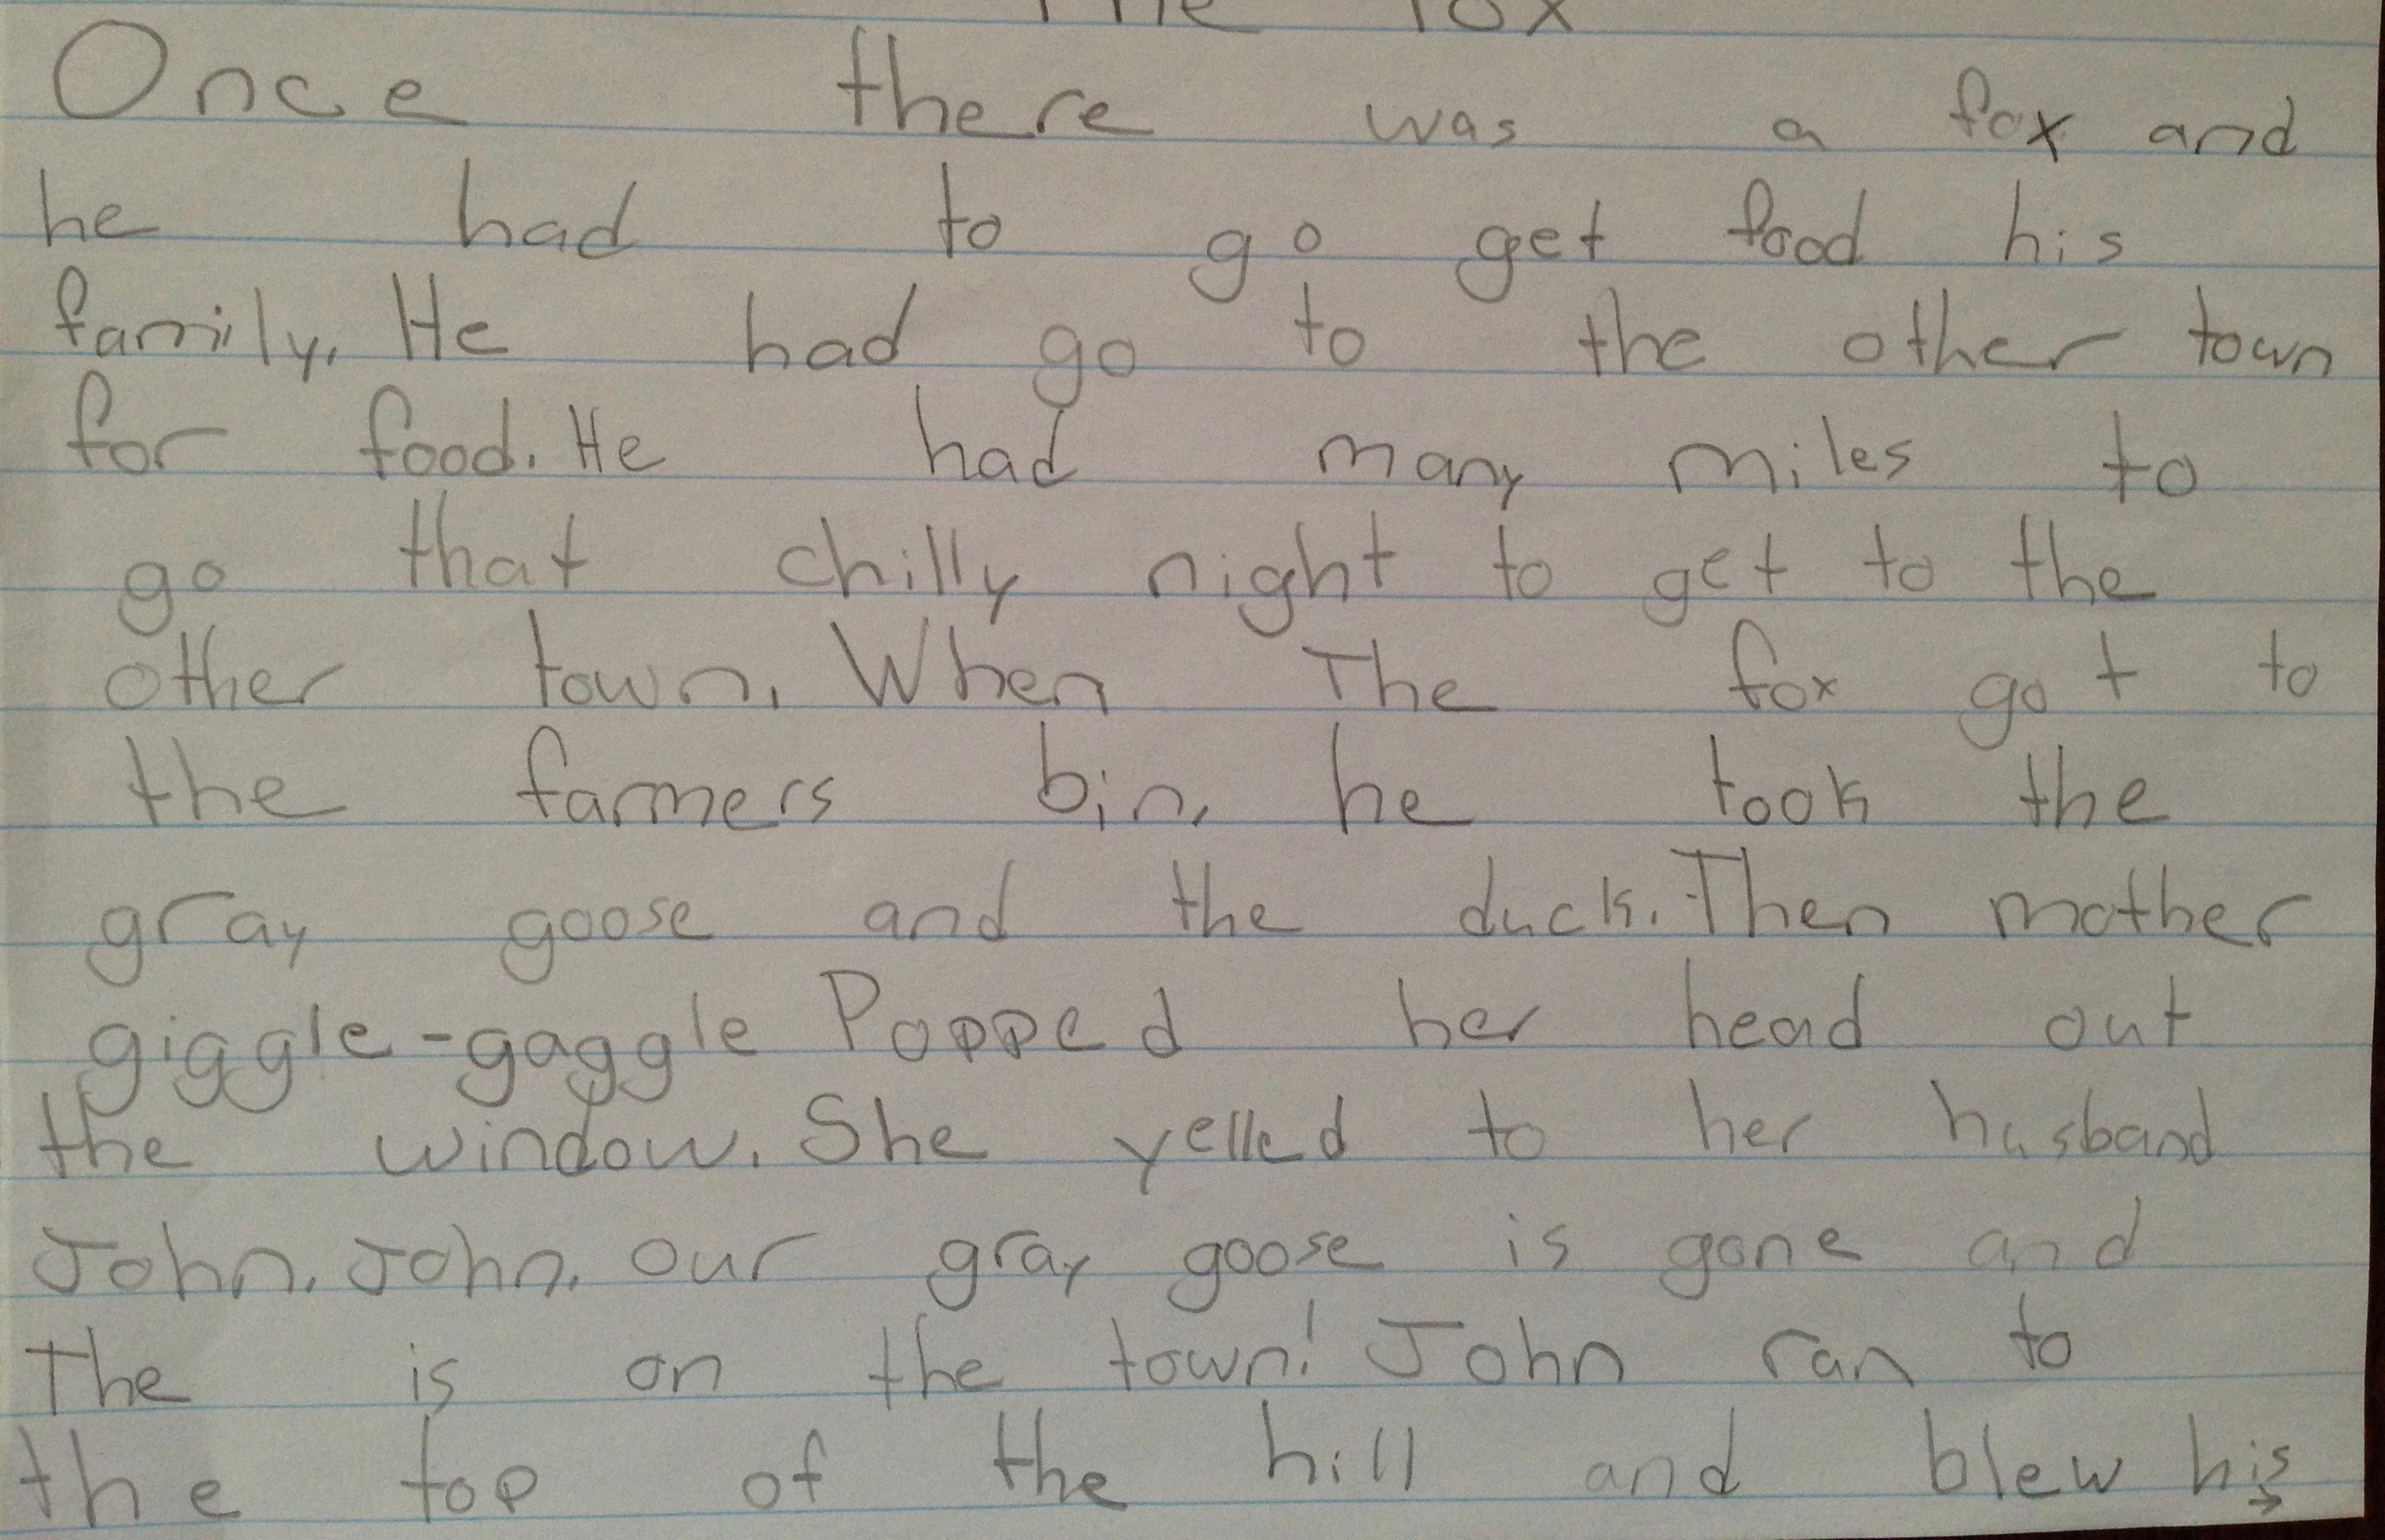 The fox
Once there was a fox and
he had to go get food his
family. He had go to the other town
for food. He had many miles to
go that chilly night to get to the
other town. When The fox got to
the farmers bin, he took the
gray goose and the duck. Then mother
giggle-gaggle Popped her head out
the window. She yelled to her husband
John. John. our gray goose is gone and
The is on the town! John ran to
the top of the hill and blew his
→